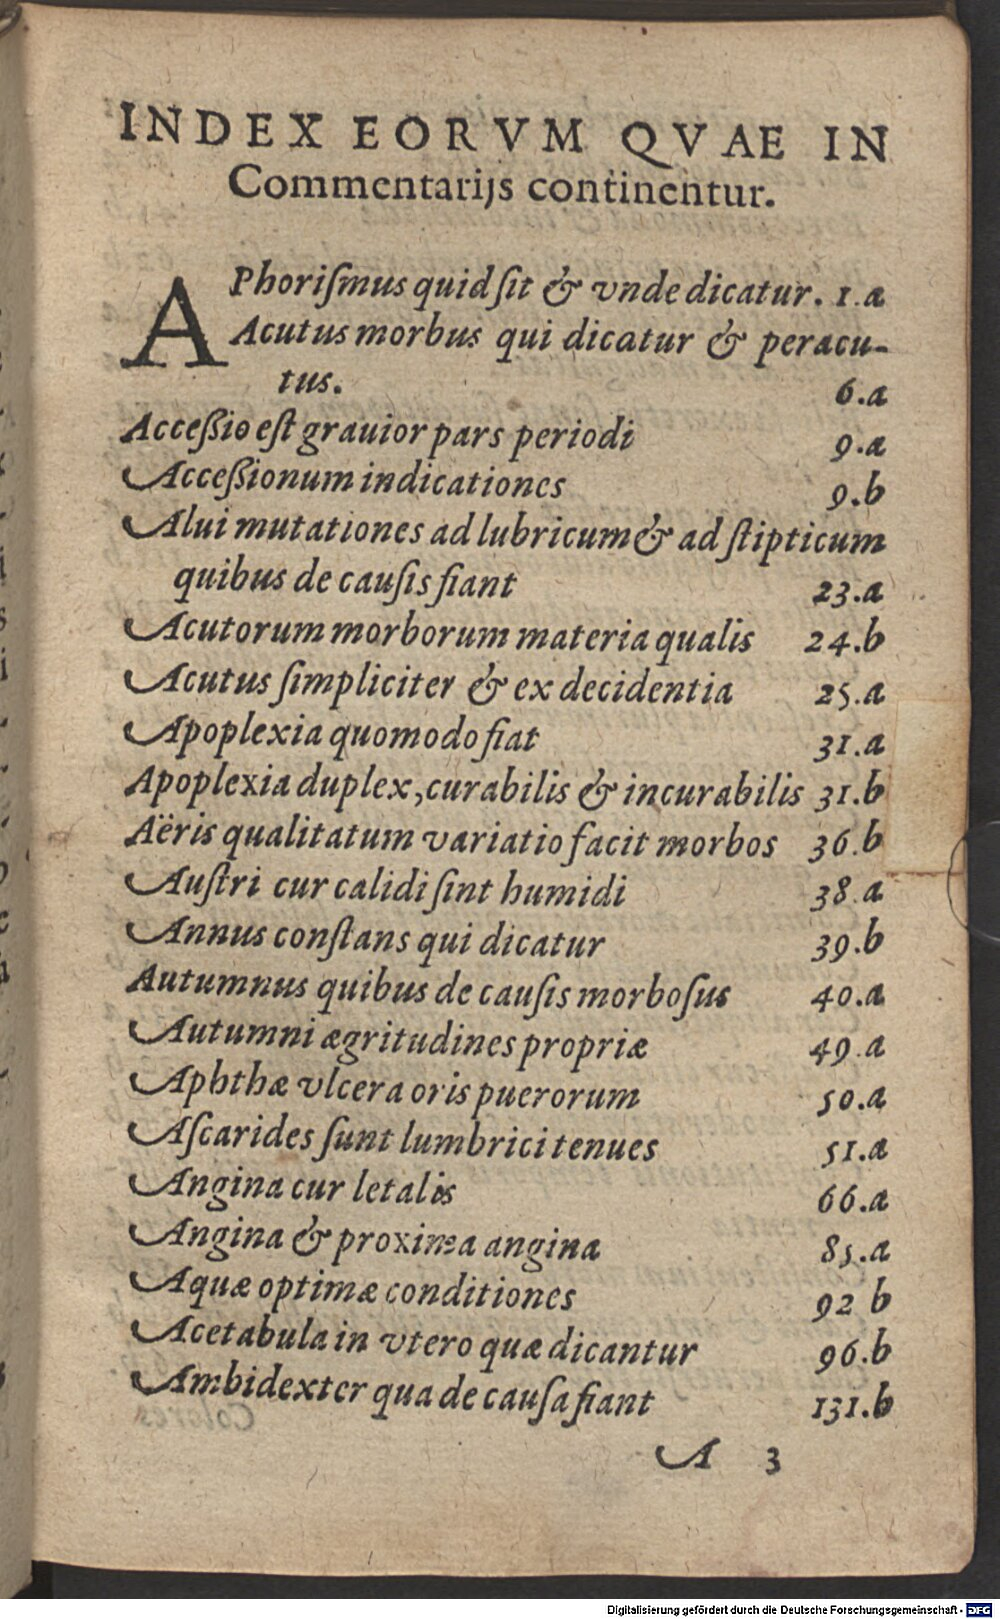 INDEX EORVM QVAE IN
Commentarijs continentur.
APhoriſmus quid ſit & vnde dicatur. 1.a
Acutus morbus qui dicatur & peracu-
tus. 6.a
Acceßio eſt grauior pars periodi 9.a
Acceßionum indicationes 9.b
Alui mutationes ad lubricum & ad ſtipticum
quibus de cauſis fiant 23.a
Acutorum morborum materia qualis 24.b
Acutus ſimpliciter & ex decidentia 25.a
Apoplexia quomodo fiat 31.a
Apoplexia duplex, curabilis & incurabilis 31.b
Aëris qualitatum variatio facit morbos 36.b
Auſtri cur calidi ſint humidi 38.a
Annus conſtans qui dicatur 39.b
Autumnus quibus de cauſis morboſus 40.a
Autumni ægritudines propriæ 49.a
Aphthæ vlcera oris puerorum 50.a
Aſcarides ſunt lumbrici tenues 51.a
Angina cur letalis 66.a
Angina & proxima angina 85.a
Aquæ optimæ conditiones 92 b
Acetabula in vtero quæ dicantur 96.b
Ambidexter qua de cauſa fiant 131.b
A 3
Digitalisierung gefördert durch die Deutsche Forschungsgemeinschaft - DFG